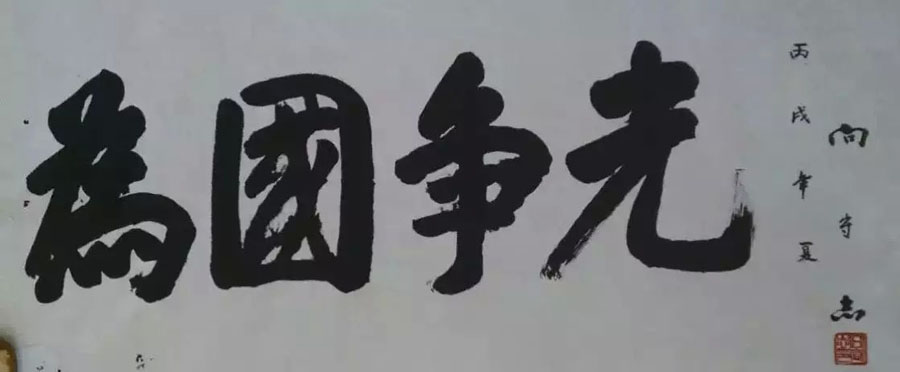 為國争光
丙戌年夏
向守志